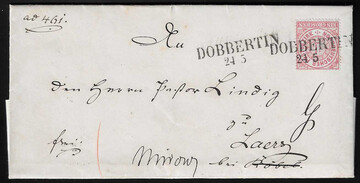 ad 461.
An
DOBBERTIN
24 5
DOBBERTIN
24 5
den Herrn Pastor Lindig
zu
frei.
Laerz
Mirow bei